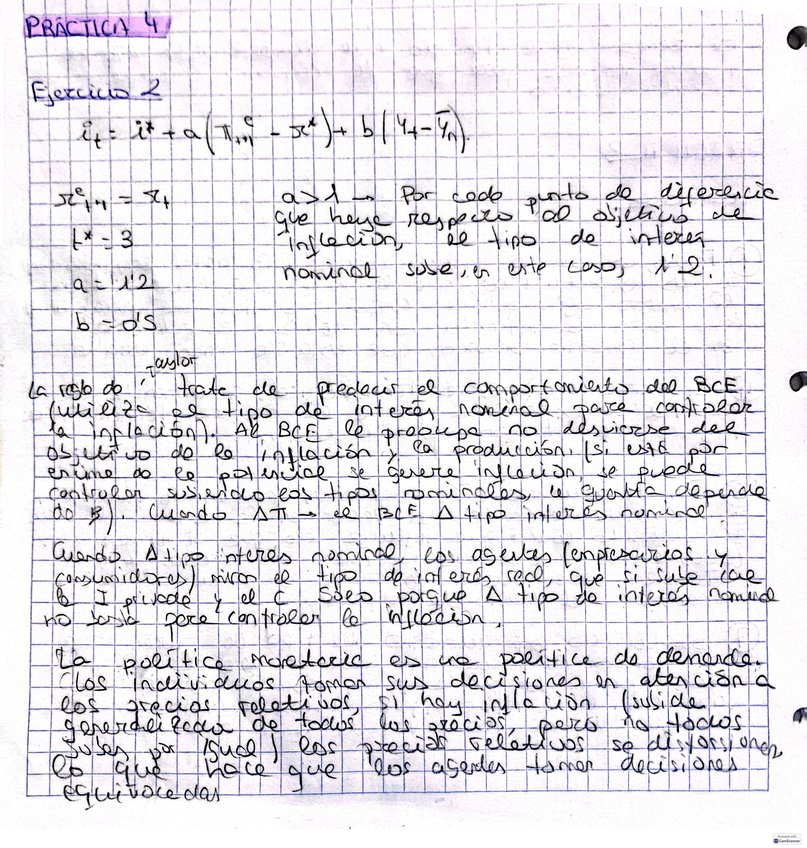 PRÁCTICA 4
Ejercicio 2
i_t = i* + a(π^e_{t+1} - π*) + b(Y_t - Ȳ_n).
π^e_{t+1} = π_t
a > 1 → Por cada punto de diferencia
que haya respecto al objetivo de
t* = 3
inflación, el tipo de interés
nominal sube, en este caso, 1'2.
a = 1'2
b = 0'5
Taylor
La regla de trata de predecir el comportamiento del BCE
(utiliza el tipo de interés nominal para controlar
la inflación). Al BCE le preocupa no desviarse del
objetivo de la inflación y la producción. (si está por
encima de la potencial se genera inflación, se puede
controlar subiendo los tipos nominales, la cuantía depende
de B). Cuando Δπ → el BCE Δ tipo interés nominal
Cuando Δ tipo interes nominal, los agentes (empresarios y
consumidores) miran el tipo de interés real, que si sube cae
la I privada y el C Solo porque Δ tipo de interés nominal
no basta para controlar la inflación.
La política monetaria es una política de demanda.
Los individuos toman sus decisiones en atención a
los precios relativos, si hay inflación (subida
generalizada de todos los precios, pero no todos
suben por igual) los precios relativos se distorsionan,
lo que hace que los agentes tomen decisiones
equivocadas
Scanned with
CamScanner